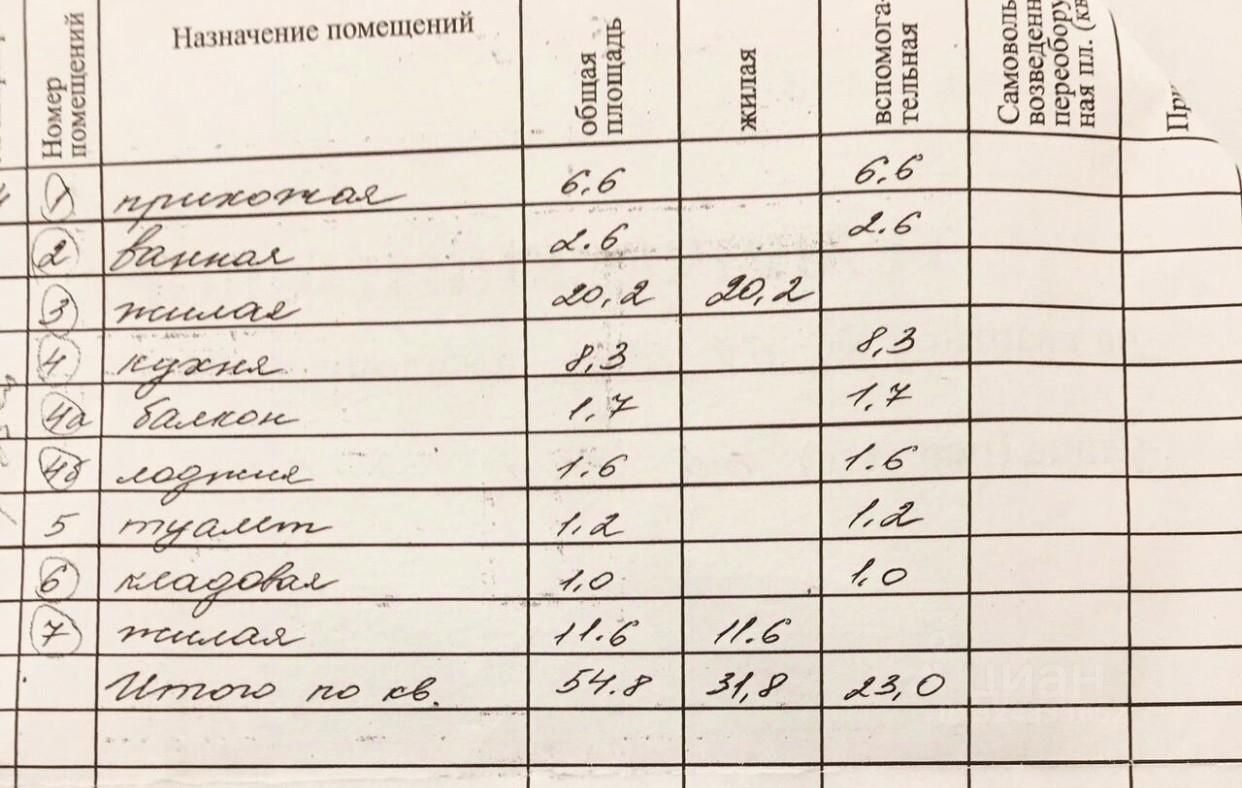 Номер помещений Назначение помещений общая площадь жилая вспомога-тельная Самоволь возведенн переобору ная пл. (кв
1 прихожая 6,6 6,6
2 ванная 2.6 2.6
3 жилая 20,2 20,2
4 кухня 8,3 8,3
4а балкон 1,7 1,7
4б лоджия 1.6 1.6
5 туалет 1,2 1,2
6 кладовая 1,0 1,0
7 жилая 11.6 11.6
Итого по кв. 54.8 31,8 23,0
циан